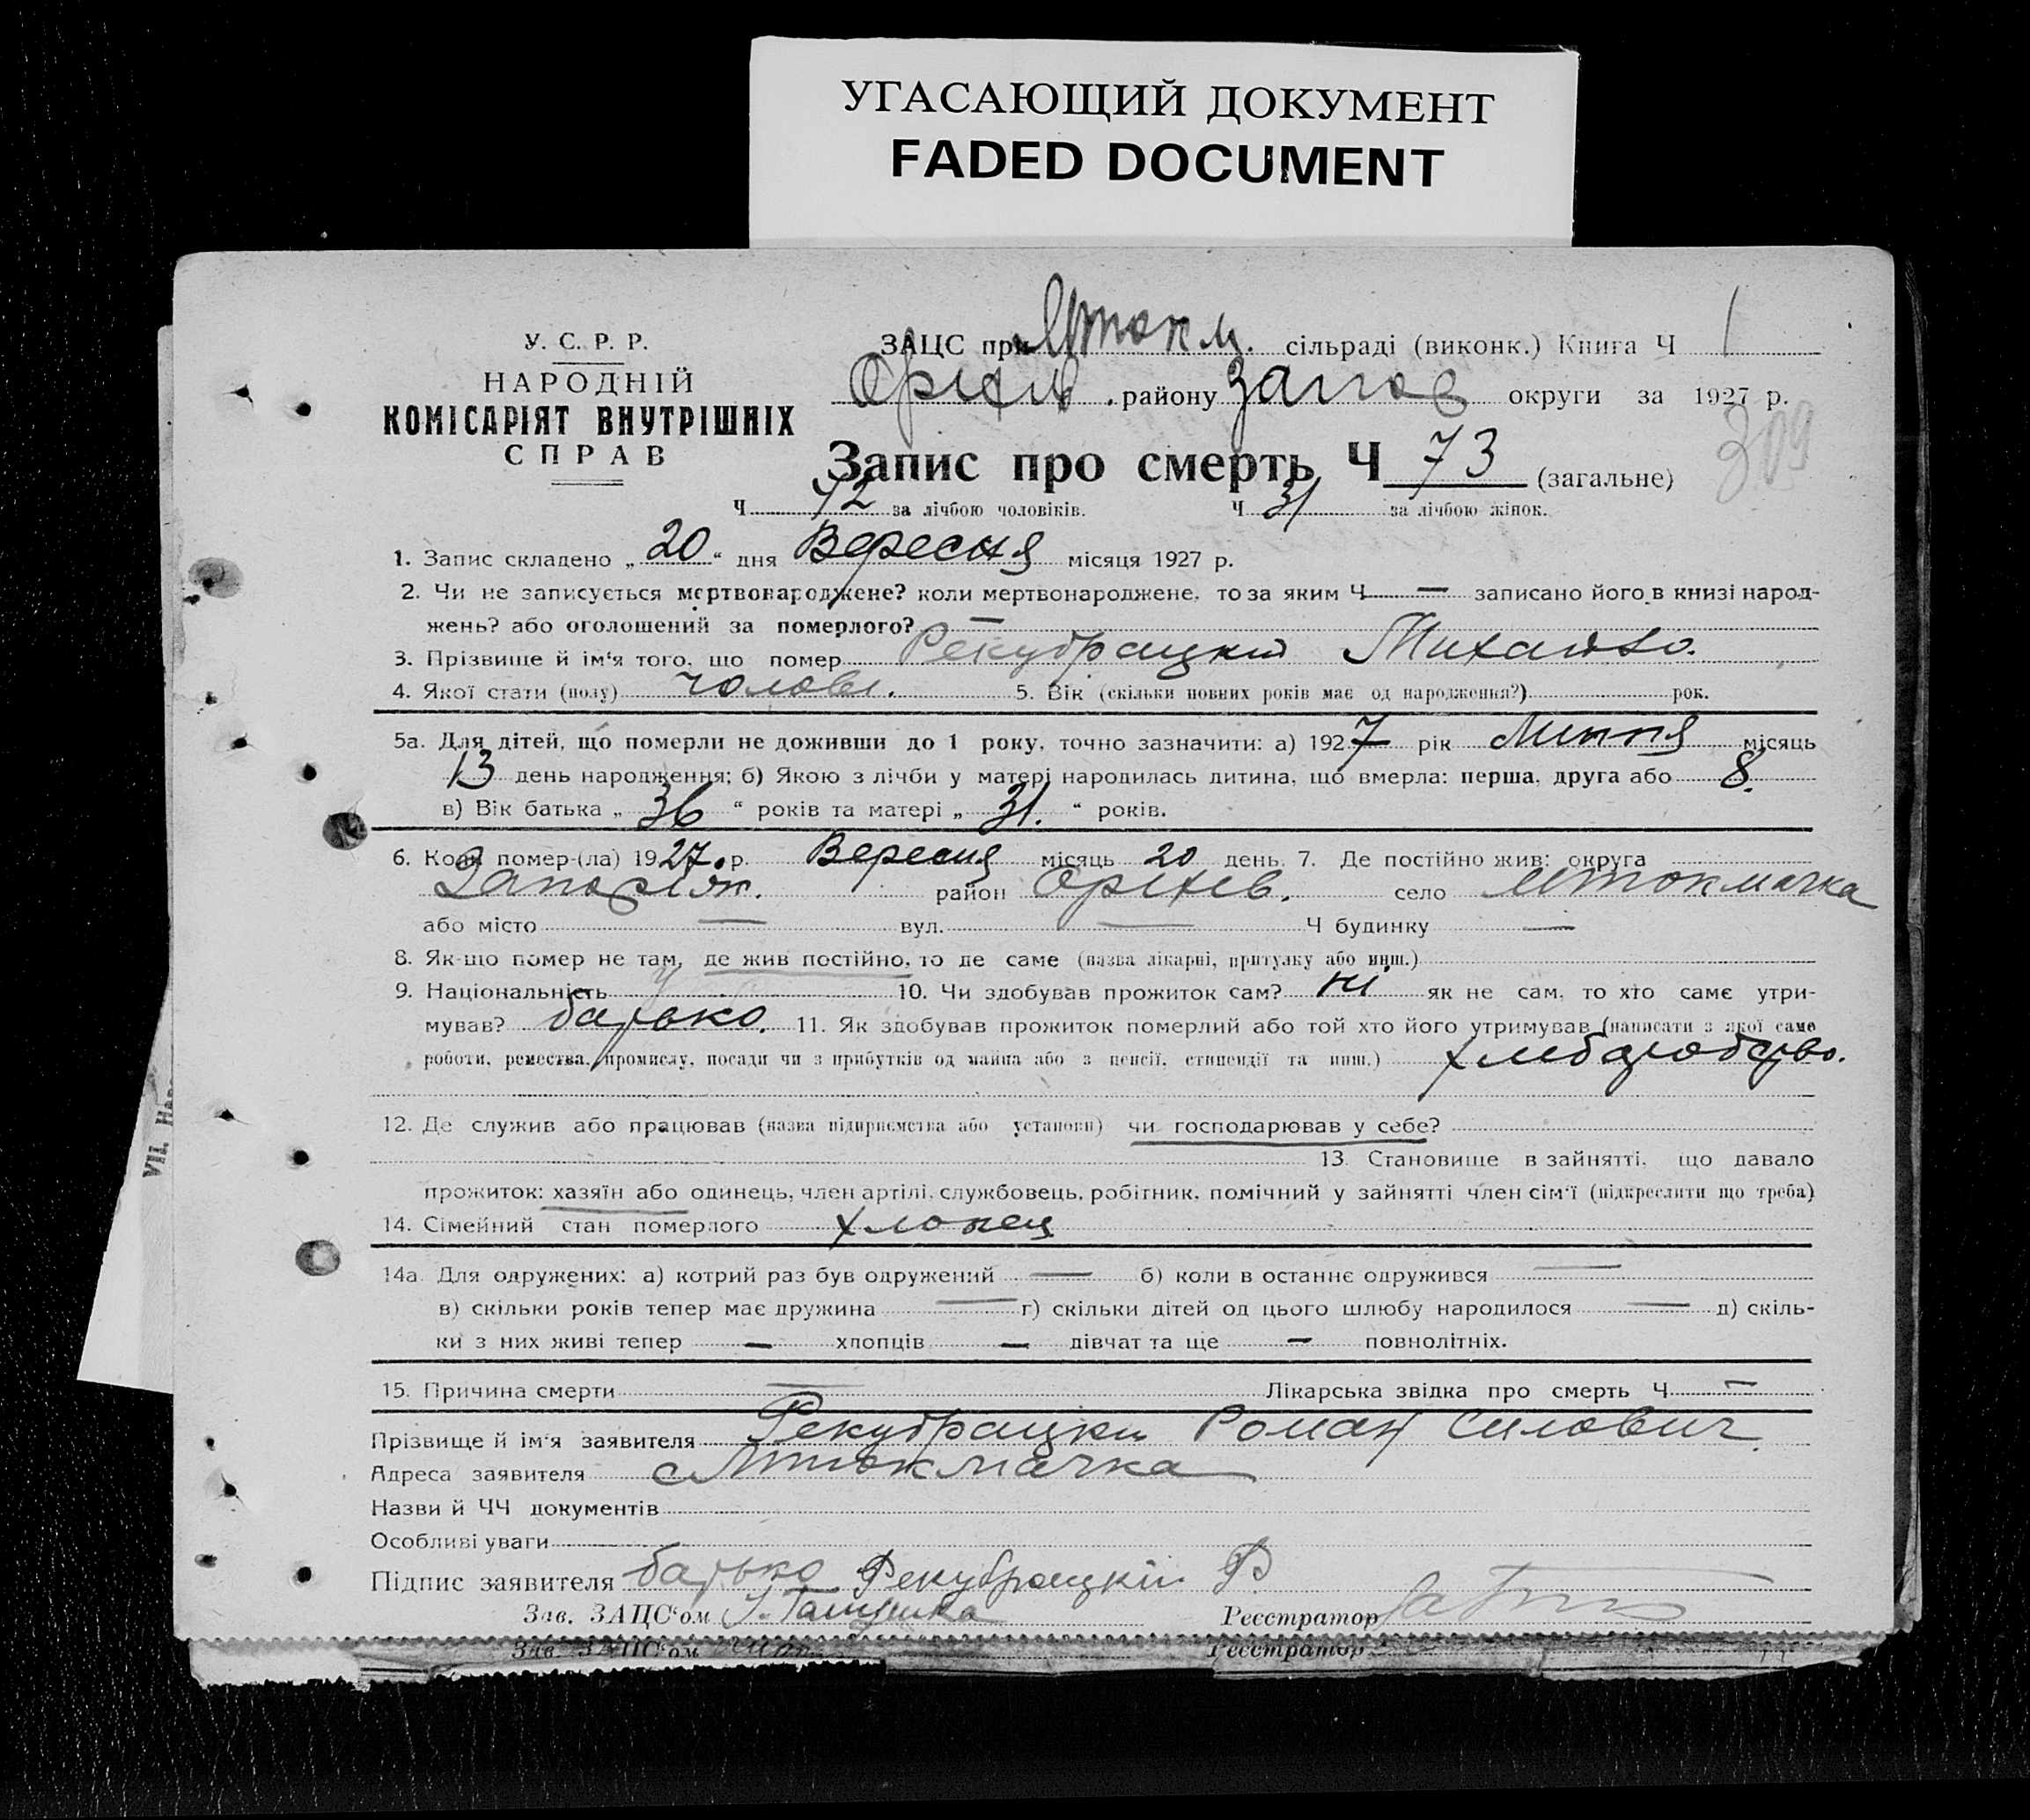 УГАСАЮЩИЙ ДОКУМЕНТ
FADED DOCUMENT
У. С. Р. Р.
НАРОДНІЙ
КОМІСАРІЯТ ВНУТРІШНІХ
СПРАВ
ЗАЦС при Мток м. сільраді (виконк.) Книга Ч 1
Оріхів. району Запоо округи за 1927 р.
309
Запис про смерть Ч 73 (загальне)
Ч 42 за лічбою чоловіків. Ч 31 за лічбою жінок.
1. Запис складено „ 20 “ дня Вересня місяця 1927 р.
2. Чи не записується мертвонароджене? коли мертвонароджене, то за яким Ч — записано його в книзі народ-
жень? або оголошений за померлого? —
3. Прізвище й ім‘я того, що помер Рекубрацкий Михайло.
4. Якої стати (полу) чолові. 5. Вік (скільки повних років має од народження?) рок.
5а. Для дітей, що померли не доживши до 1 року, точно зазначити: а) 1927 рік Липня місяць
13 день народження; б) Якою з лічби у матері народилась дитина, що вмерла: перша, друга або 8.
в) Вік батька „ 36 “ років та матері „ 31. “ років.
6. Коли помер-(ла) 1927. р. Вересня місяць 20 день. 7. Де постійно жив: округа
Запоріж. район Оріхів. село Мтокмачка
або місто — вул. — Ч будинку —
8. Як-що помер не там, де жив постійно, то де саме (назва лікарні, притулку або инш.)
9. Національність у 10. Чи здобував прожиток сам? ні як не сам, то хто саме утри-
мував? батько. 11. Як здобував прожиток померлий або той хто його утримував (написати з якої саме
роботи, ремества, промислу, посади чи з прибутків од майна або з пенсії, стипендії та инш.) хлібаробство.
12. Де служив або працював (назва підприємства або установи) чи господарював у себе?
13. Становище в зайнятті, що давало
прожиток: хазяїн або одинець, член артілі, службовець, робітник, помічний у зайнятті член сім‘ї (підкреслити що треба)
14. Сімейний стан померлого хлопец
14а. Для одружених: а) котрий раз був одружений — б) коли в останнє одружився —
в) скільки років тепер має дружина — г) скільки дітей од цього шлюбу народилося — д) скіль-
ки з них живі тепер — хлопців — дівчат та ще — повнолітніх.
15. Причина смерти — Лікарська звідка про смерть Ч —
Прізвище й ім‘я заявителя Рекубрацки Роман Силович
Адреса заявителя с Мтокмачка
Назви й ЧЧ документів
Особливі уваги
Підпис заявителя батько Рекубрацкій Р
Зав. ЗАЦС‘ом Реєстратор
Зав. ЗАЦС‘ом Реєстратор
VII.